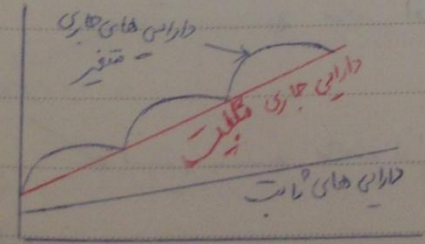 دارایی های جاری
متغیر
دارایی جاری مثبت
دارایی های ثابت